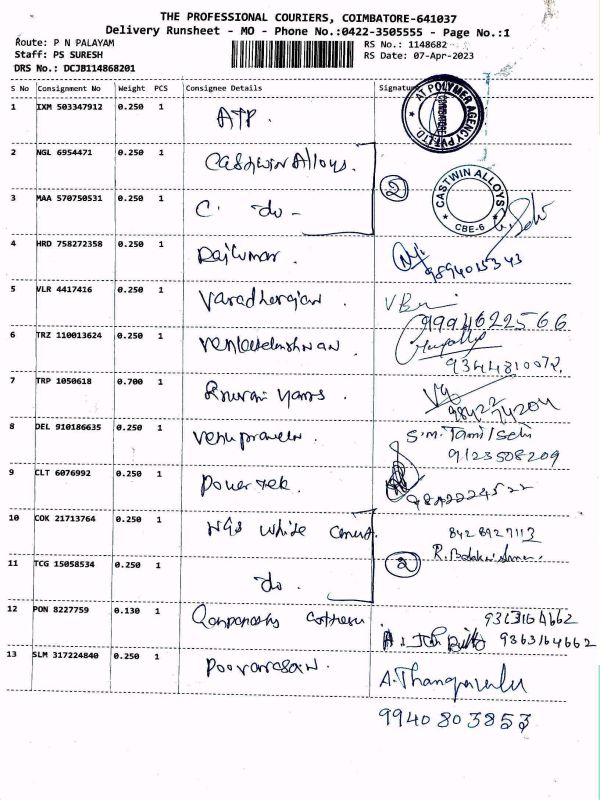 THE PROFESSIONAL COURIERS, COIMBATORE-641037
Delivery Runsheet - MO - Phone No.:0422-3505555 - Page No.:1
Route: P N PALAYAM
RS No.: 1148682
Staff: PS SURESH
RS Date: 07-Apr-2023
DRS No.: DCJB114868201
S No Consignment No Weight PCS Consignee Details Signature
1 IXM 503347912 0.250 1 ATP. AT POLYMER AGENCY PVT. LTD COIMBATORE
2 NGL 6954471 0.250 1 Castwin Alloys. 2 CASTWIN ALLOYS CBE-6
3 MAA 570750531 0.250 1 C. do -
4 HRD 758272358 0.250 1 Rajkumar. 9894015343
5 VLR 4417416 0.250 1 Varadharajan. 9994622566
6 TRZ 110013624 0.250 1 9344810072.
7 TRP 1050618 0.700 1 9842274204
8 DEL 910186635 0.250 1 Venupraveen. S.M. Tamil Selvi
9123508209
9 CLT 6076992 0.250 1 Power Tek. 9842224522
10 COK 21713764 0.250 1 NGS White Cement. 8428927113
11 TCG 15058534 0.250 1 do. 2 R. Balakrishnan.
12 PON 8227759 0.130 1 9363164662
9363164662
13 SLM 317224840 0.250 1 Poovarasan. A. Thangavelu
9940803853